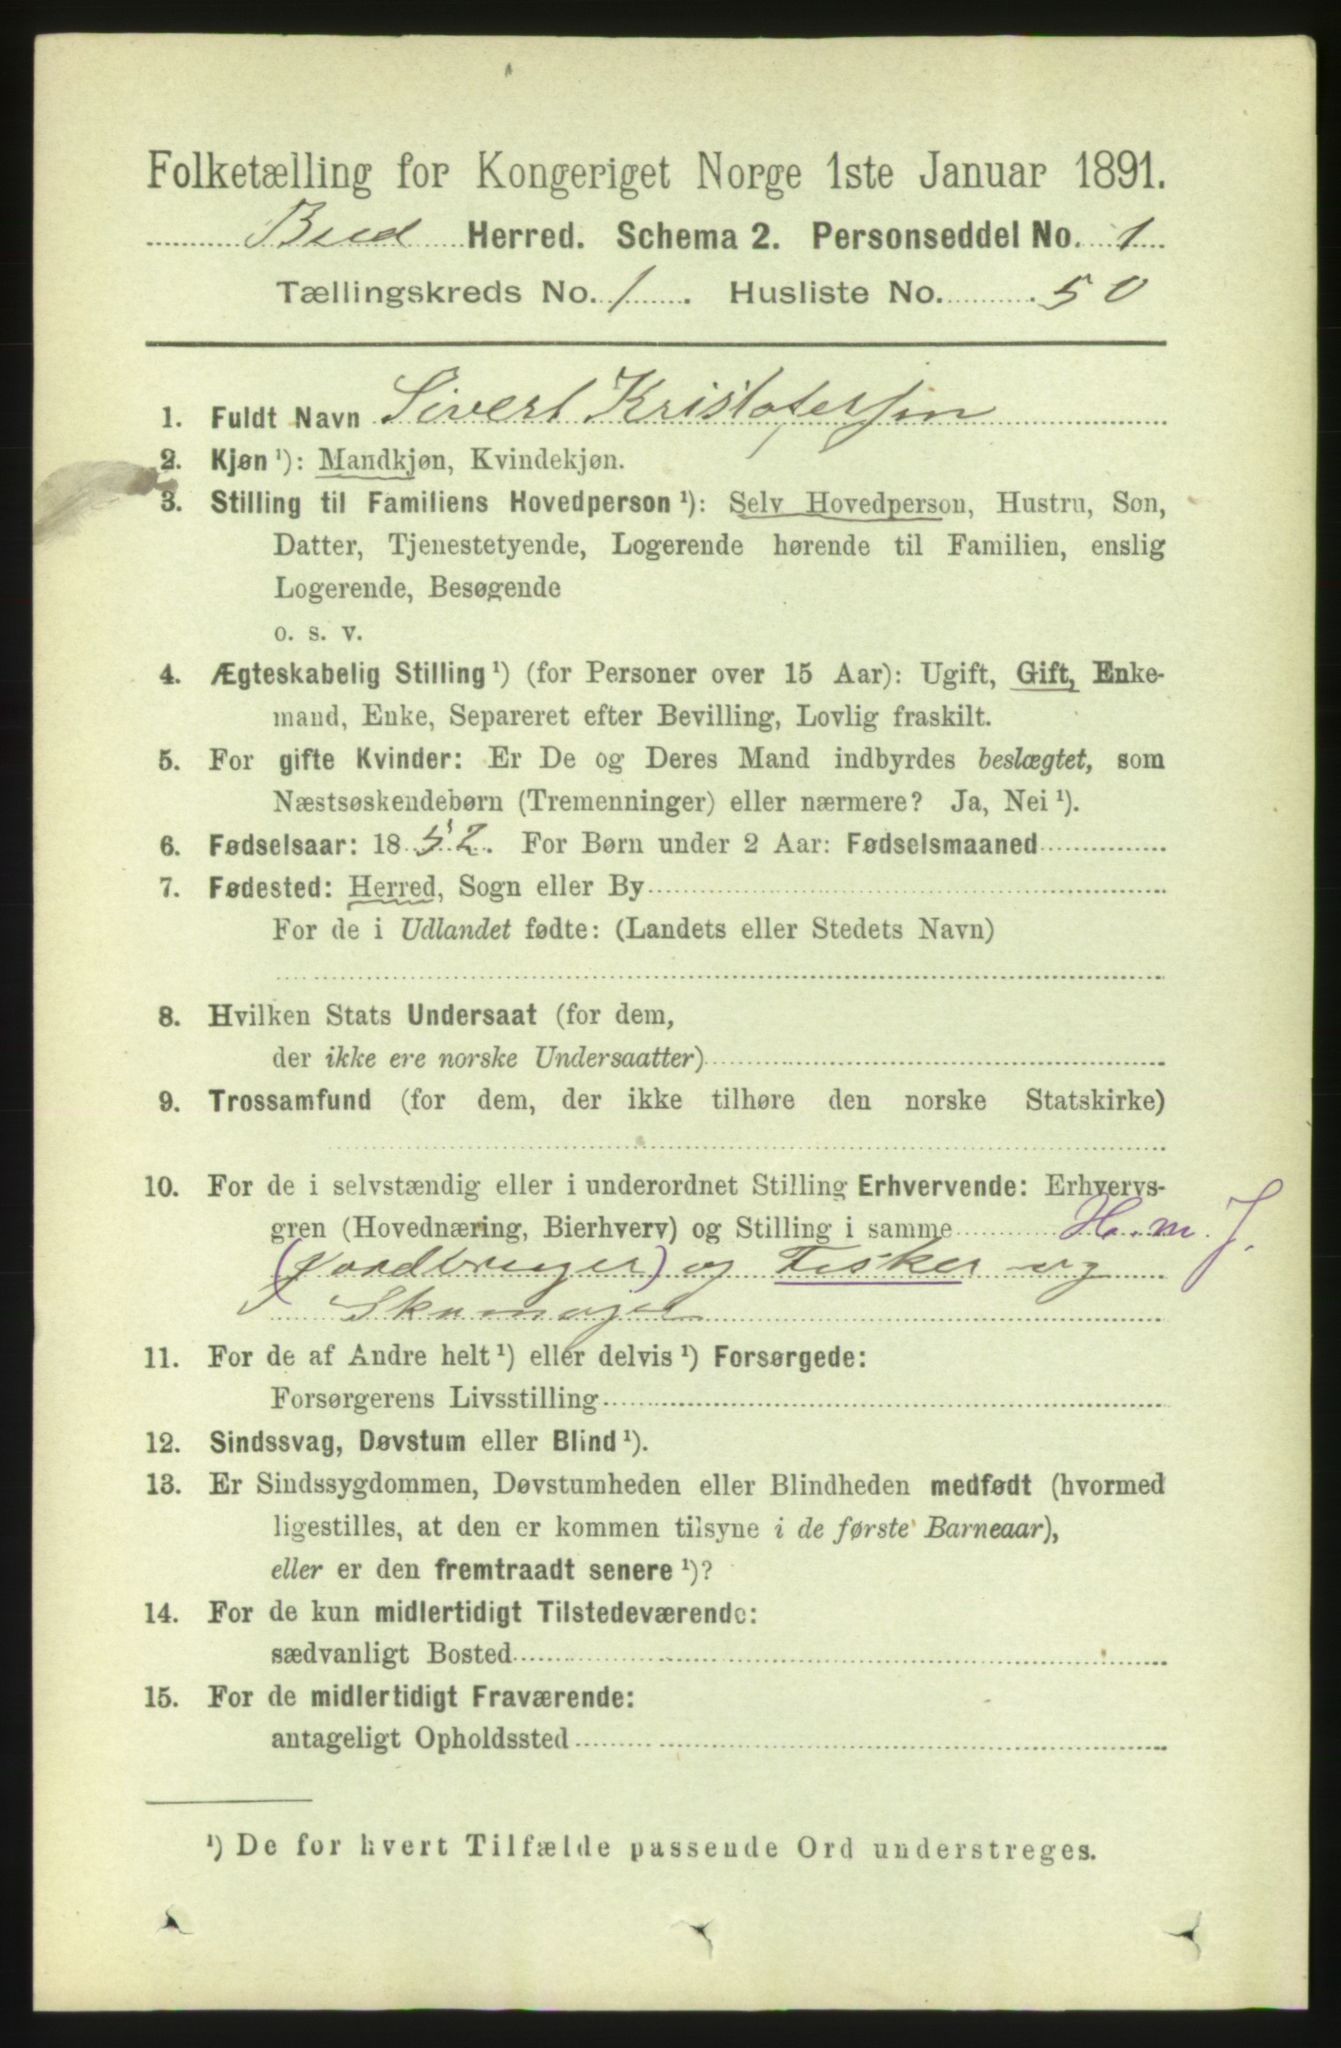 Folketælling for Kongeriget Norge 1ste Januar 1891.
Bud Herred. Schema 2. Personseddel No. 1
Tællingskreds No. 1. Husliste No. 50
1. Fuldt Navn Sivert Kristofersen
2. Kjøn¹): Mandkjøn, Kvindekjøn.
3. Stilling til Familiens Hovedperson¹): Selv Hovedperson, Hustru, Søn,
Datter, Tjenestetyende, Logerende hørende til Familien, enslig
Logerende, Besøgende
o. s. v.
4. Ægteskabelig Stilling¹) (for Personer over 15 Aar): Ugift, Gift, Enke-
mand, Enke, Separeret efter Bevilling, Lovlig fraskilt.
5. For gifte Kvinder: Er De og Deres Mand indbyrdes beslægtet, som
Næstsøskendebørn (Tremenninger) eller nærmere? Ja, Nei¹).
6. Fødselsaar: 1852. For Børn under 2 Aar: Fødselsmaaned
7. Fødested: Herred, Sogn eller By
For de i Udlandet fødte: (Landets eller Stedets Navn)
8. Hvilken Stats Undersaat (for dem,
der ikke ere norske Undersaatter)
9. Trossamfund (for dem, der ikke tilhøre den norske Statskirke)
10. For de i selvstændig eller i underordnet Stilling Erhvervende: Erhvervs-
gren (Hovednæring, Bierhverv) og Stilling i samme H. m. J.
(Jordbruger) og Fisker og
Skomager
11. For de af Andre helt¹) eller delvis¹) Forsørgede:
Forsørgerens Livsstilling
12. Sindssvag, Døvstum eller Blind¹).
13. Er Sindssygdommen, Døvstumheden eller Blindheden medfødt (hvormed
ligestilles, at den er kommen tilsyne i de første Barneaar),
eller er den fremtraadt senere¹)?
14. For de kun midlertidigt Tilstedeværende:
sædvanligt Bosted
15. For de midlertidigt Fraværende:
antageligt Opholdssted
¹) De for hvert Tilfælde passende Ord understreges.